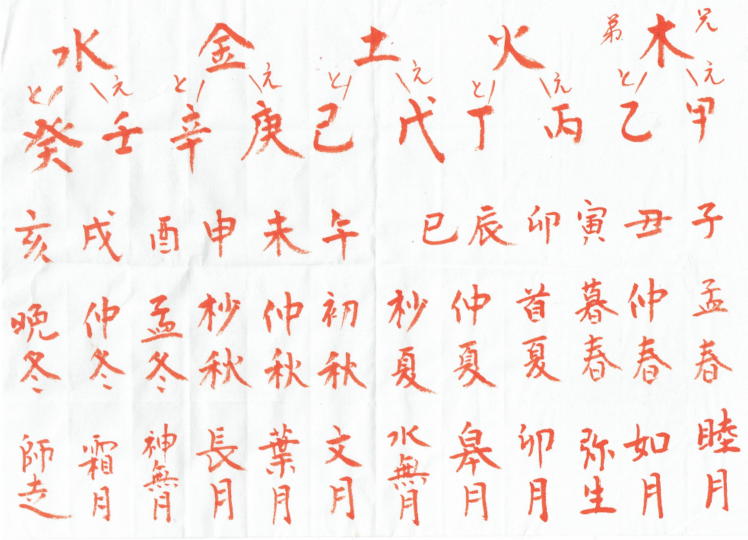 兄 木 弟 火 土 金 水
え と え と え と え と え と
甲 乙 丙 丁 戊 己 庚 辛 壬 癸
子 丑 寅 卯 辰 巳 午 未 申 酉 戌 亥
孟春 仲春 暮春 首夏 仲夏 杪夏 初秋 仲秋 杪秋 孟冬 仲冬 晩冬
睦月 如月 弥生 卯月 皐月 水無月 文月 葉月 長月 神無月 霜月 師走